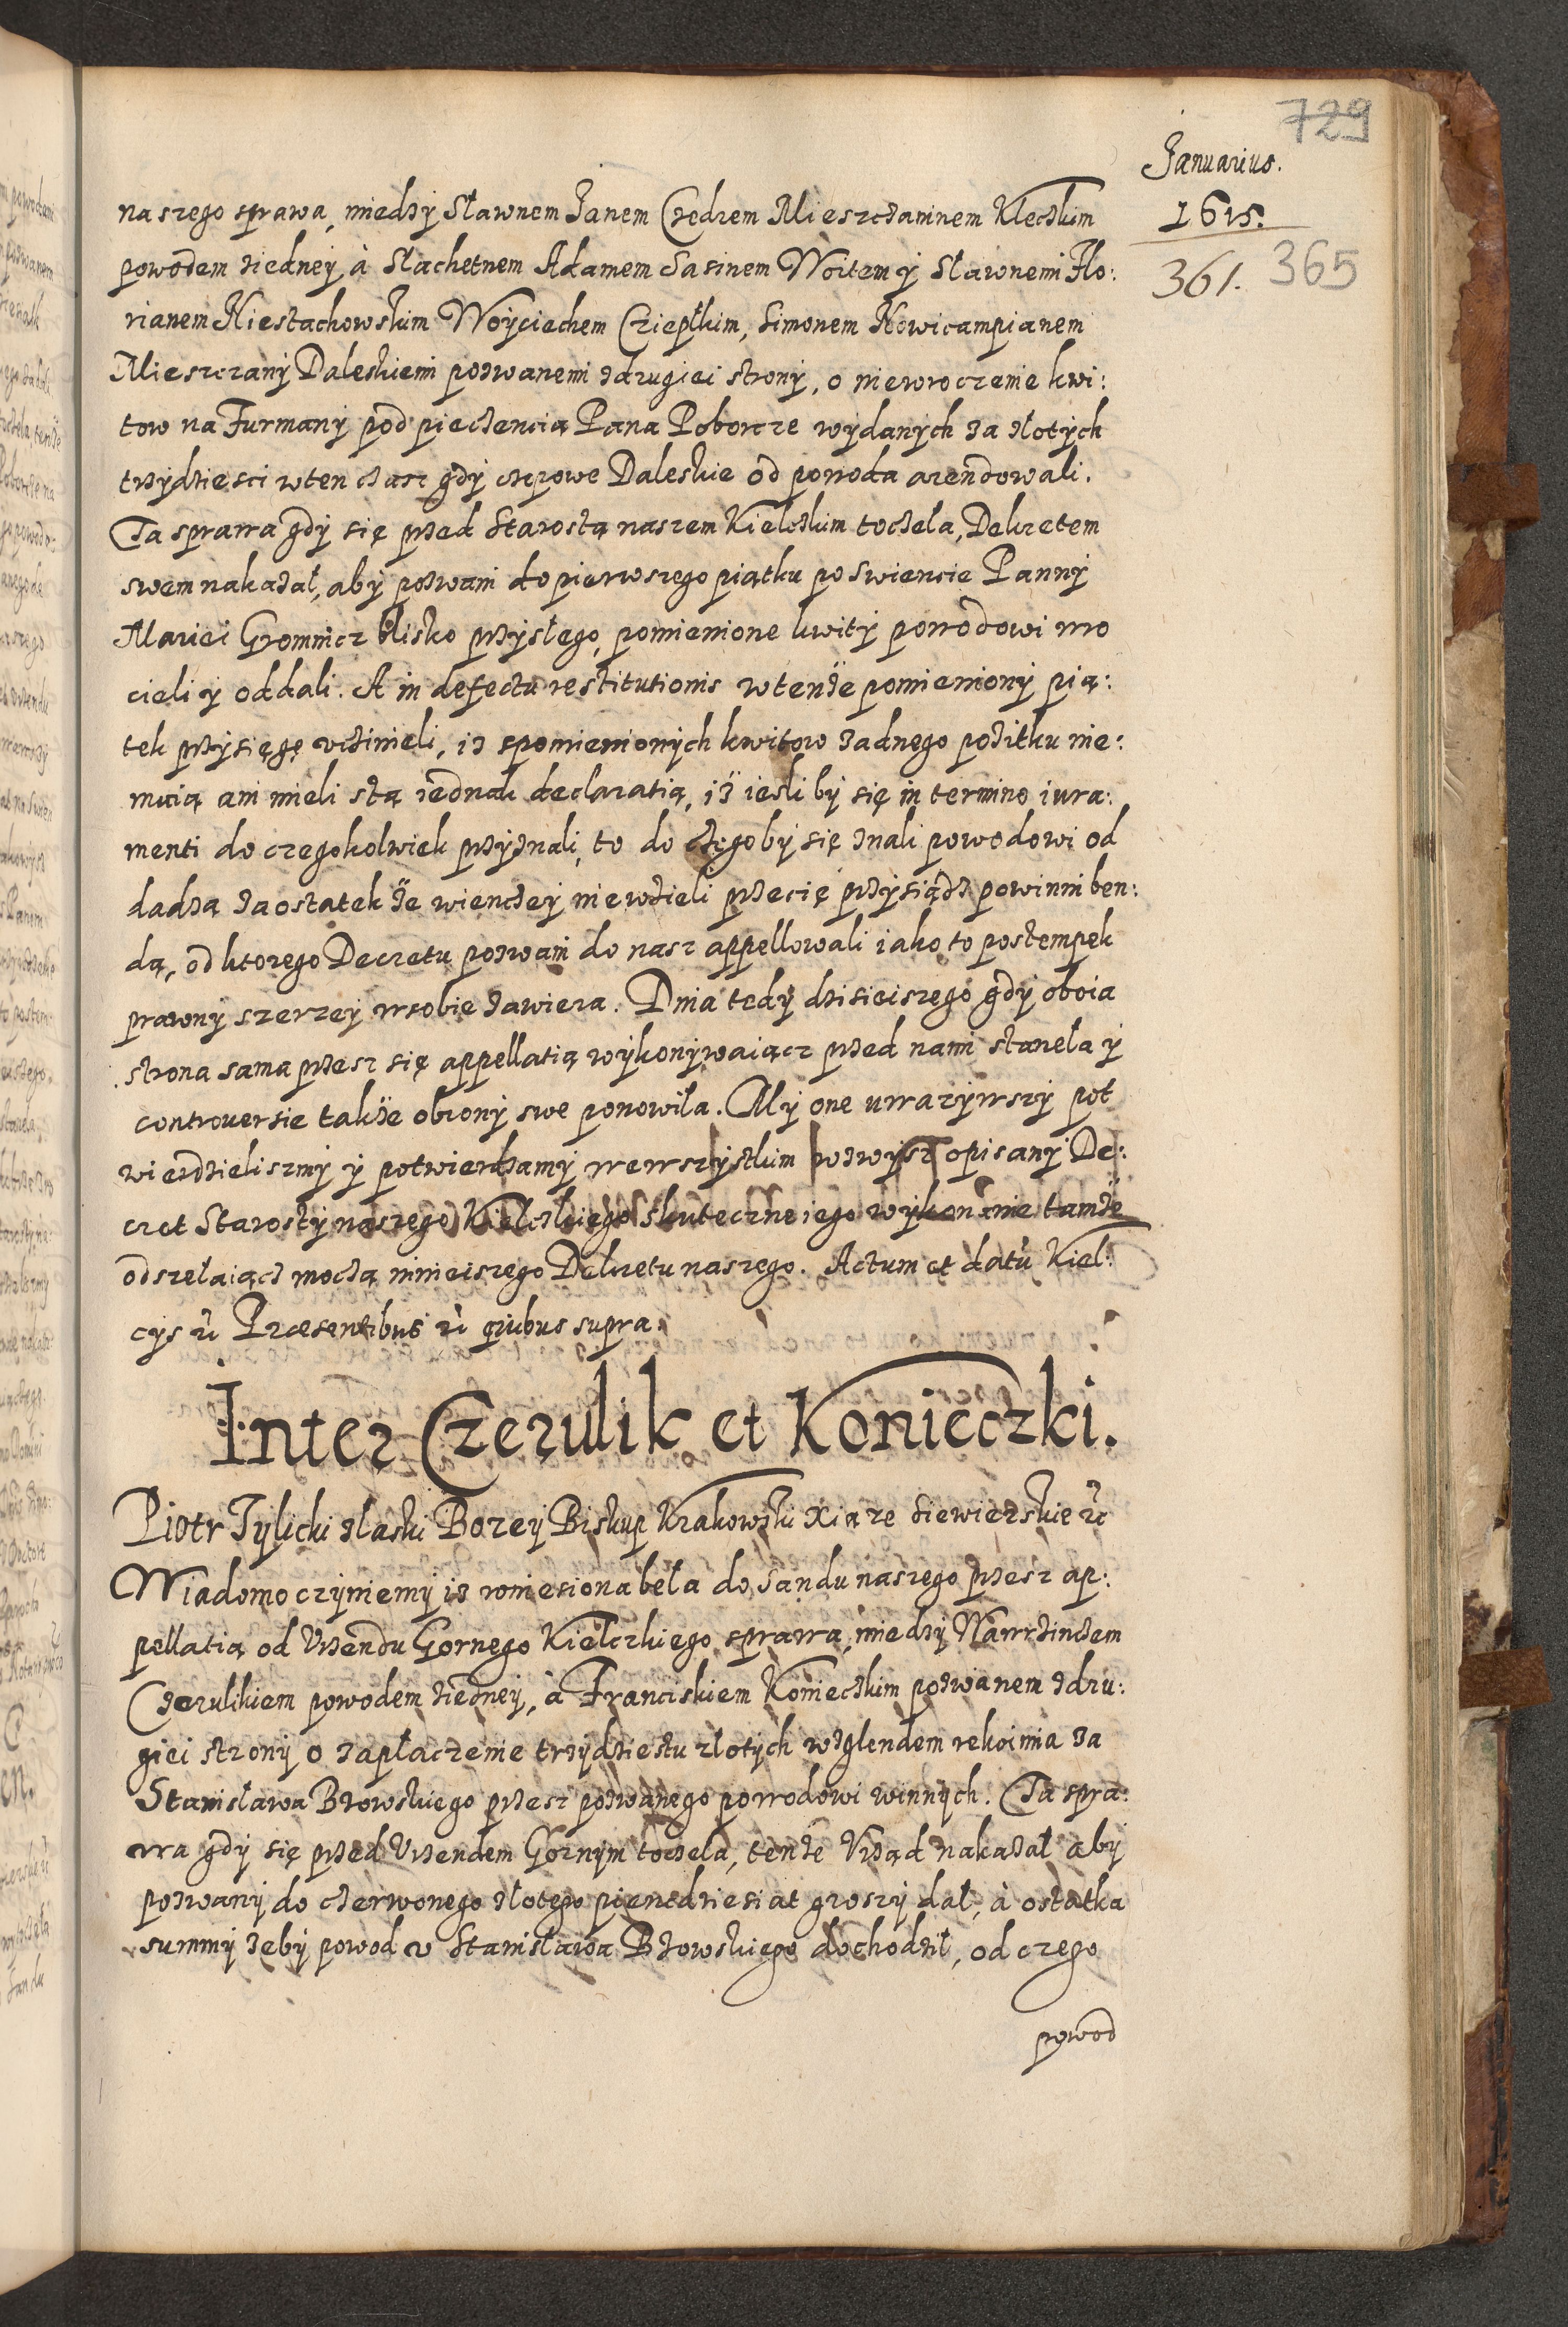 729
Januarius.
1615.
361. 365
naszego sprawa, miedzy Sławnem Janem Czedrem Mieszczaninem Kleczkim
powodem ziedney, à Slachetnem Adamem Sasinem Woitem y Sławnemi Flo:
rianem Niestachowskim Woyciechem Cziepłkim, Simonem Nowicampianem
Mieszczany Daleskiemi pozwanemi zdrugiei strony, o niewroczenie kwi:
tow na Furmany pod pieczencią Pana Poborcze wydanych za złotych
trzydziesci wten czasz gdy czopowe Daleskie od powoda arendowali.
Ta sprawa gdy się przed Starostą naszem Kielczkim toczeła, Dekretem
swem nakazał, aby pozwani do pierwszego piątku po Swiencie Panny
Mariei Gromnicz blisko przyszłego, pomienione kwity powodowi wro
cieli y oddali. A in defectu restitutionis wtenże pomieniony pią:
tek przysięgę vczinieli, iz spomienionych kwitow zadnego pozitku nie:
maią ani mieli stą iednak declaratią, iż iesli by się in termino iura:
menti do czegokolwiek przyznali, to do czegoby się znali powodowi od
dadzą zaostatek że wienczey niewzieli przecię przysiądz powinni ben:
dą, od ktorego Decretu pozwani do nasz appellowali iako to postempek
prawny szerzey wsobie zawiera. Dnia tedy dzisieiszego gdy oboia
strona sama przesz się appellatią wykonywaiącz przed nami staneła y
controuersie takze obrony swe ponowiła. My one uwazywszy pot
wierdzieliszmy y potwierdzamy wewszystkim wzwysz opisany De:
cret Starosty naszego Kielczkiego skuteczne iego wykonanie tamże
odszełaiącz moczą ninieiszego Dekretu naszego. Actum et datū Kiel:
cys ut Præsentibus ut quibus supra.
Inter Czerulik et Konieczki.
Piotr Tylicki złaski Bozey Biskup Krakowski Xiąze Siewierskie etc
Wiadomo czyniemy iz wniesiona beła do Sandu naszego przesz ap:
pellatią od Vrzendu Gornego Kielczkiego sprawa, miedzy Wawrzinczem
Czerulikiem powodem ziedney, à Franciskiem Konieczkim pozwanem zdru:
giei strony o zapłaczenie trzydziestu złotych wzglendem rekoimia za
Stanisława Bzowskiego przesz pozwanego powodowi winnych. Ta spra:
wa gdy się przed Vrzendem Gornym toczeła, tenże Vrząd nakazał aby
pozwany do czerwonego złotego piendziesiat groszy dał, à ostatka
summy zeby powod v Stanisława Bzowskiego dochodził, od czego
powod